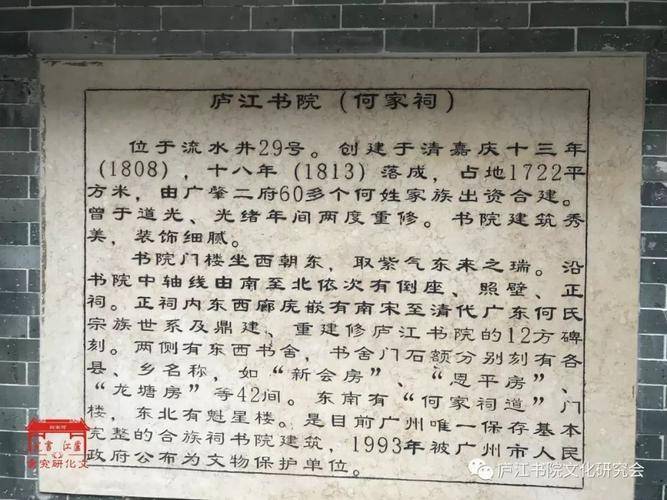 庐江书院（何家祠）
位于流水井29号。创建于清嘉庆十三年
（1808），十八年（1813）落成，占地1722平
方米，由广肇二府60多个何姓家族出资合建。
曾于道光、光绪年间两度重修。书院建筑秀
美，装饰细腻。
书院门楼坐西朝东，取紫气东来之瑞。沿
书院中轴线由南至北依次有倒座、照壁、正
祠。正祠内东西廊庑嵌有南宋至清代广东何氏
宗族世系及鼎建、重建修庐江书院的12方碑
刻。两侧有东西书舍，书舍门石额分别刻有各
县、乡名称，如“新会房”、“恩平房”、
“龙塘房”等42间。东南有“何家祠道”门
楼，东北有魁星楼。是目前广州唯一保存基本
完整的合族祠书院建筑，1993年被广州市人民
政府公布为文物保护单位。
庐江书院文化研究会